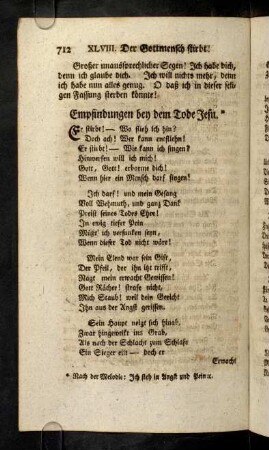 712 XLVIII. Der Gottmensch stirbt.
Großer unaussprechlicher Segen! Ich habe dich,
denn ich glaube dich. Ich will nichts mehr, denn
ich habe nun alles genug. O daß ich in dieser seli-
gen Fassung sterben könnte!
Empfindungen bey dem Tode Jesu. *
Er stirbt! — Wo flieh ich hin?
Doch ach! Wer kann entfliehn!
Er stirbt! — Wie kann ich singen?
Hinwerfen will ich mich!
Gott, Gott! erbarme dich!
Wenn hier ein Mensch darf singen!
Ich darf! und mein Gesang
Voll Wehmuth, und ganz Dank
Preist seines Todes Ehre!
In ewig tiefer Pein
Müßt' ich versunken seyn,
Wenn dieser Tod nicht wäre!
Mein Elend war sein Gift,
Der Pfeil, der ihn itzt trifft,
Nagt mein erwacht Gewissen!
Gott Rächer! strafe nicht,
Mich Staub! weil dein Gericht
Ihn aus der Angst gerissen.
Sein Haupt neigt sich hinab,
Zwar hingewelkt ins Grab,
Als nach der Schlacht zum Schlafe
Ein Sieger eilt — doch er
Erwacht
* Nach der Melodie: Ich steh in Angst und Pein ꝛc.